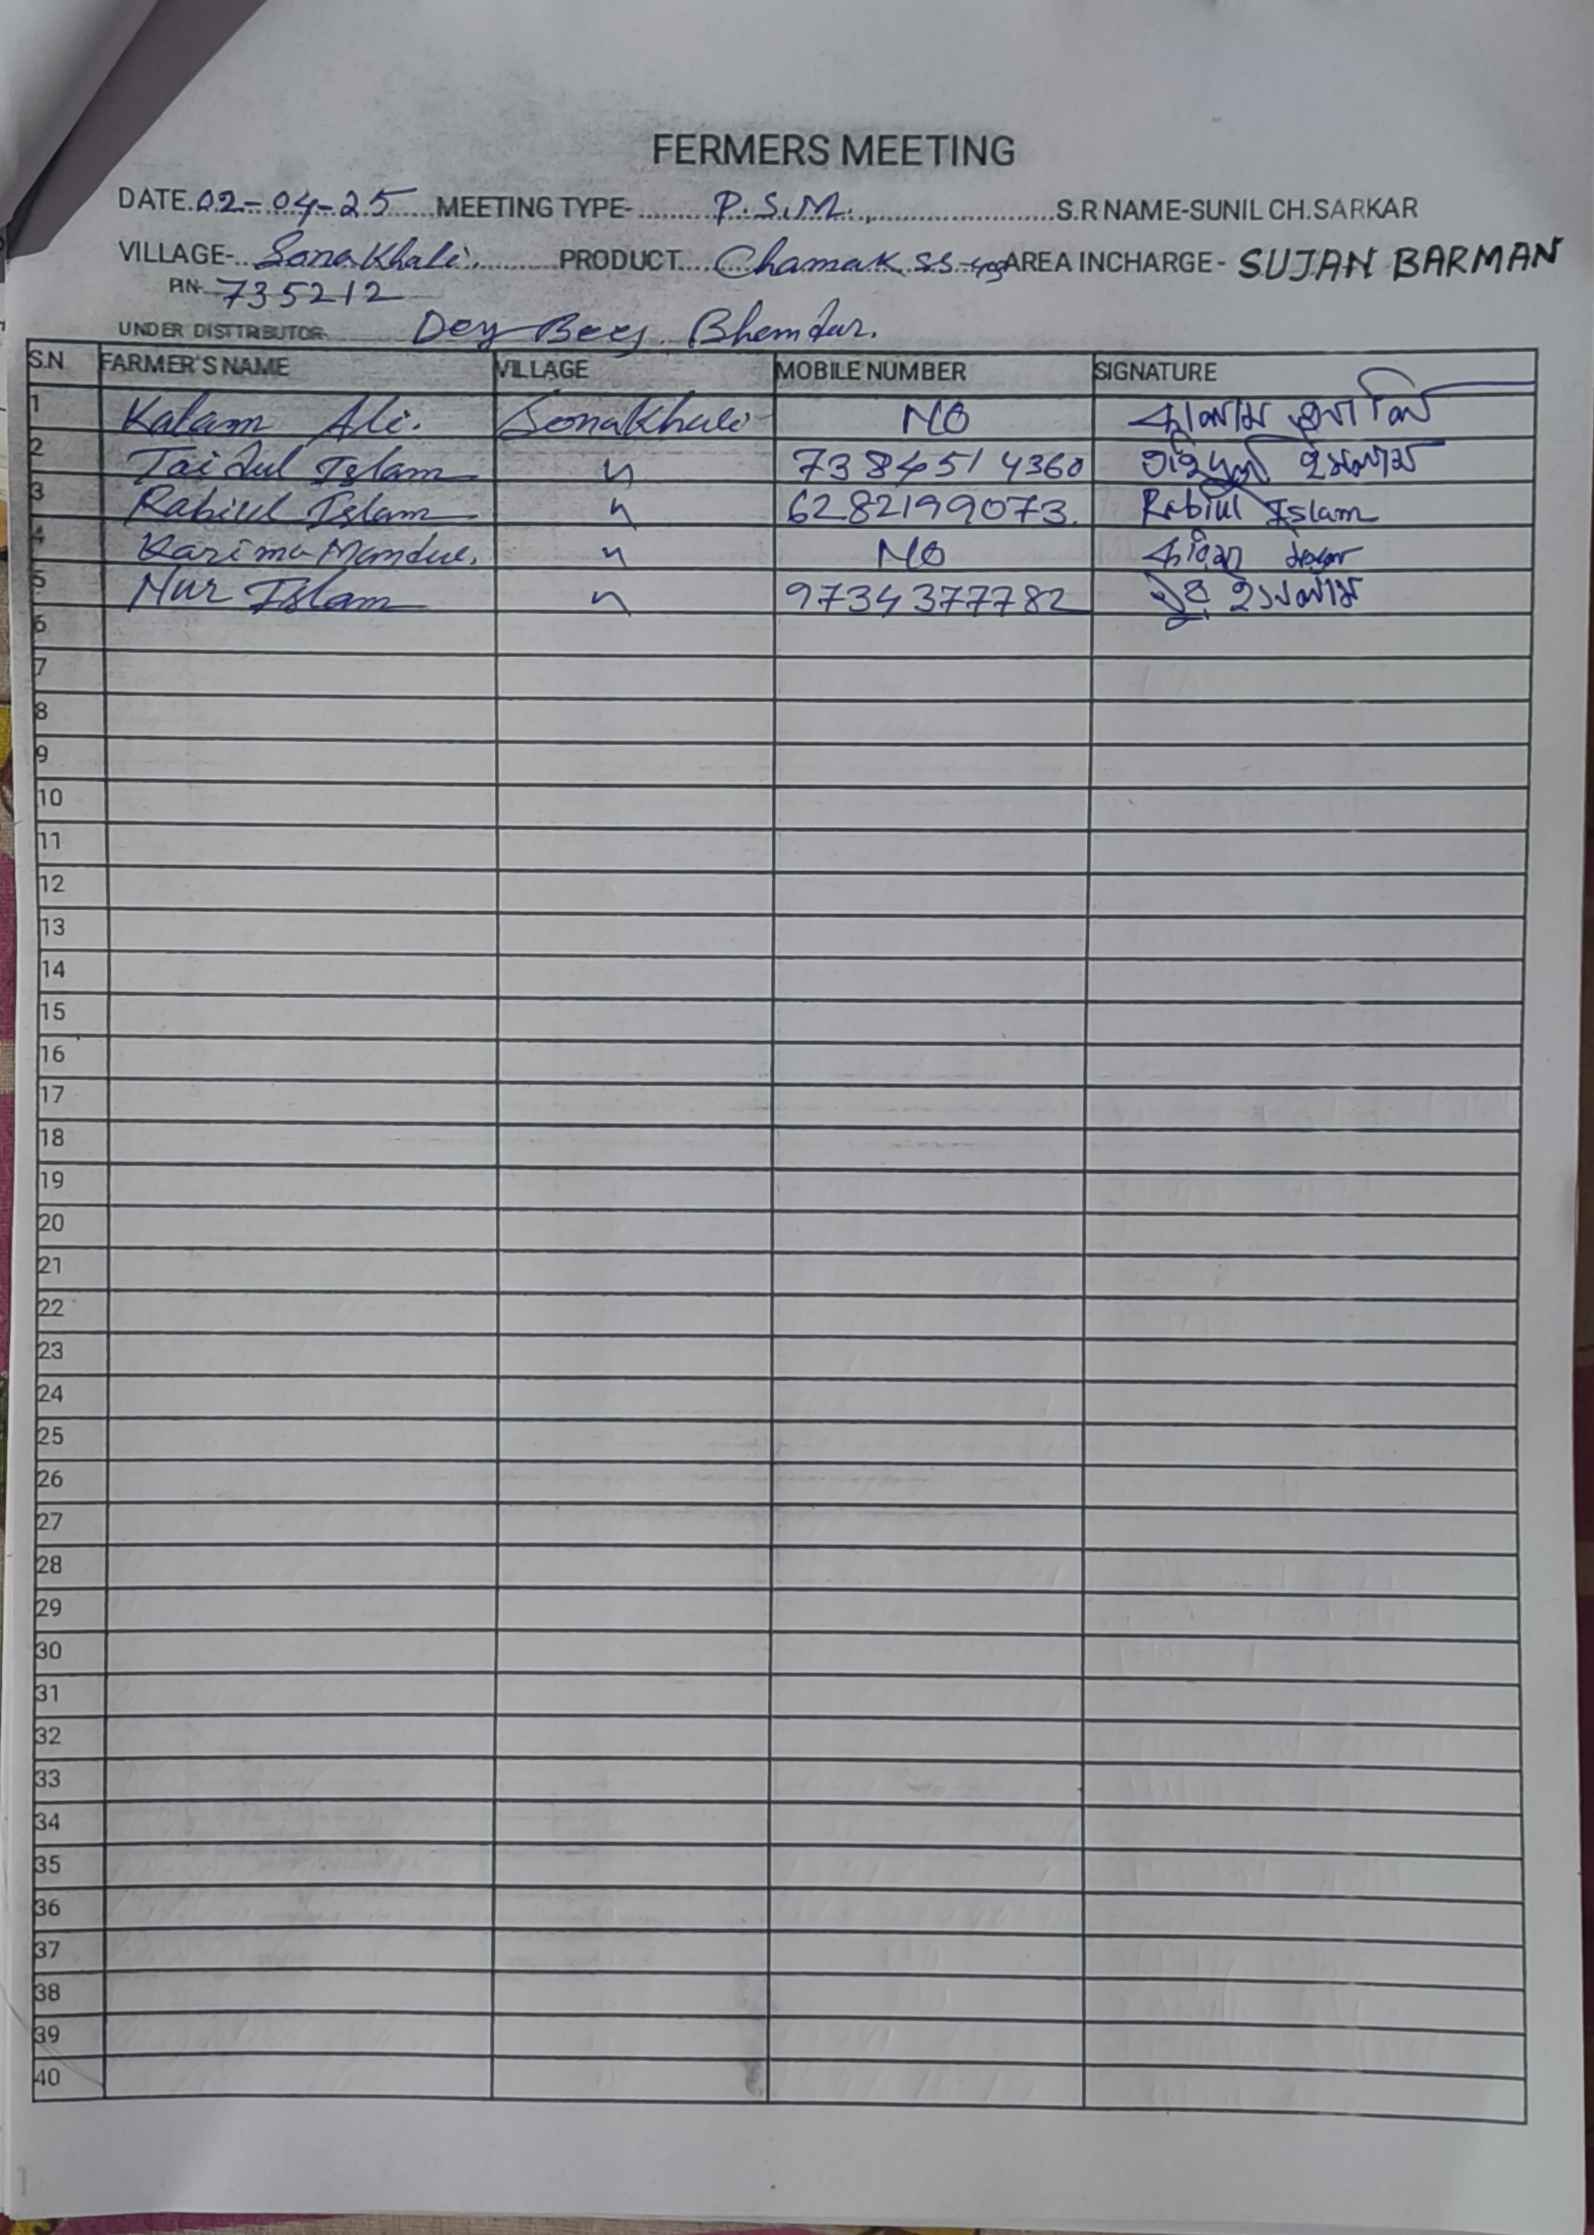 FERMERS MEETING
DATE.02-04-25......MEETING TYPE-..........P.S.M.,........................S.R NAME-SUNIL CH.SARKAR
VILLAGE-...Sonakhali...........PRODUCT.....Chamak S.S. AREA INCHARGE- SUJAN BARMAN
PIN-735212
UNDER DISTTRIBUTOR............ Dey Bees
S.N FARMER'S NAME VILLAGE MOBILE NUMBER SIGNATURE
1 Kalam Ali. Sonakhali NO
2 Taidul Islam 〃 7384514360 ইসলাম
3 Rabiul Islam 〃 6282199073. Rabiul Islam
4 Karima 〃 NO
5 Nur Islam 〃 9734377782 ইসলাম
6
7
8
9
10
11
12
13
14
15
16
17
18
19
20
21
22
23
24
25
26
27
28
29
30
31
32
33
34
35
36
37
38
39
40